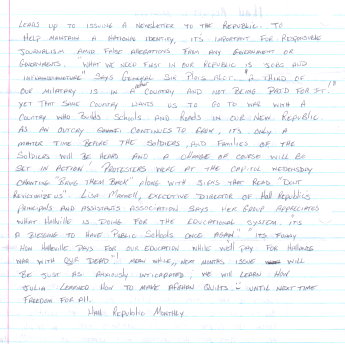 Leads up to issuing a newsletter to the Republic. To
help maintain a national identity, its important for responsible
journalism and false allegations from any government or
governments. "What we need first in our Republic is jobs and
infrastructure" says General Sir Plois Alot. "A third of
our military is in another country and not being paid for it."
Yet that same country wants us to go to war with a
country who builds schools and roads in our new Republic
As an outcry continues to grow, its only a
matter time before the soldiers and families of the
soldiers will be heard and a change of course will be
set in action. Protesters were at the capital Wednesday
chanting "Bring them back" along with signs that read "Dont
revictimize us". Lisa M, executive director of Hall Republics
Principals and Assistants Association says her group appreciates
what Hallville is doing for the educational system, its
a blessing to have "Public Schools once again." "Its funny
how Hallville pays for our education while we'll pay for Hollands
war with our dead"! Mean while, next months issue will
be just as anxiously anticipated; we will learn how
Julia learned how to make afghan quilts. Until next time
freedom for all.
Hall Republic Monthly